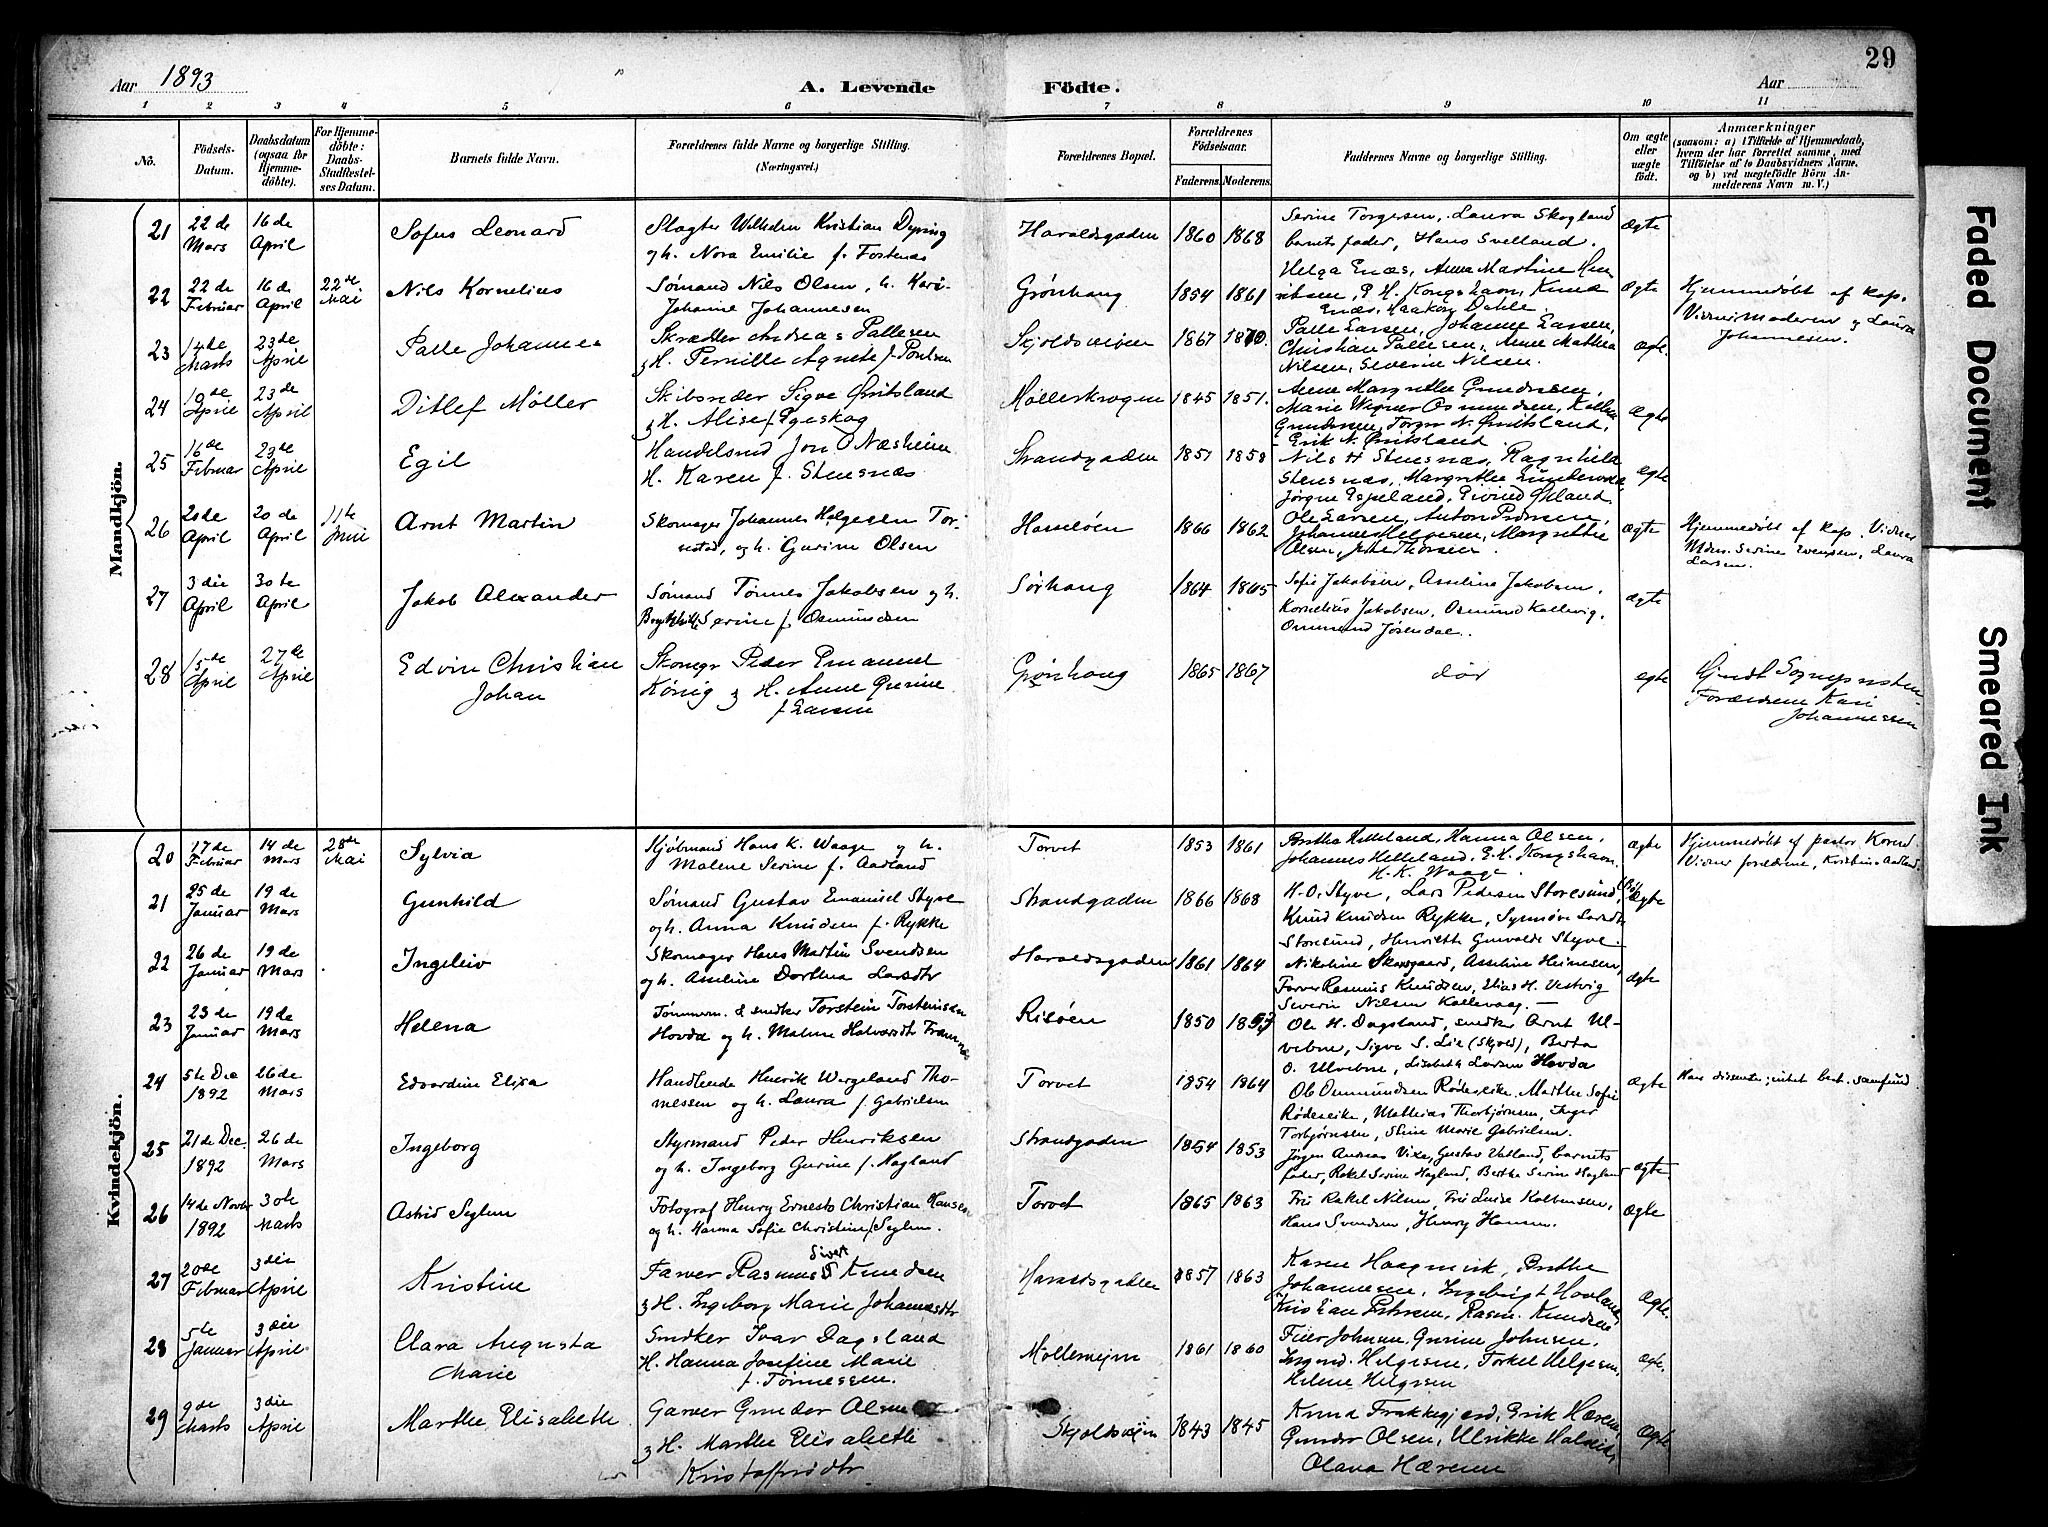 29
Aar 1893
A. Levende
Födte.
Aar
1 2 3 4 5 6 7 8 9 10 11
No.
Födsels-Datum.
Daabsdatum (ogsaa for Hjemme-döbte).
For Hjemme-döbte: Daabs-Stadfæstel-ses Datum.
Barnets fulde Navn.
Forældrenes fulde Navne og borgerlige Stilling.
(Næringsvei.)
Forældrenes Bopæl.
Forældrenes Födselsaar.
Faderens. Moderens.
Faddernes Navne og borgerlige Stilling.
Om ægte eller uægte födt.
Anmærkninger
(saasom: a) i Tilfælde af Hjemmedaab,
hvem der har forrettet samme, med
Tilföielse af to Daabsvidners Navne,
og b) ved uægtefödte Börn An-
melderens Navn m. V.)
Mandkjön.
21 22de Mars 16de April Sofus Leonard Slagter Wilhelm Kristian Dyring
og h. Nora Emilie f. Fosternes
Haraldsgaden 1860 1868 Serine Torgersen, Laura Skogland
barnets fader, Hans Svelland. ægte
22 22de Februar 16de April 22de Mai Nils Kornelius Sømand Nils Olsen, h. Kari
Johanne Johannesen
Grønhaug 1854 1861 Helga Enæs, Anna Martine Hen
riksen, P. H. Kongshavn, Knud
Enæs, Haakon Dahle ægte Hjemmedøbt af kap.
Vidner: Moderen og Laura
Johannesen.
23 14de Marts 23de April Palle Johannes Skrædder Andreas Pallesen
& H. Pernille Agnete f. Poulsen
Skjoldsveien 1867 1870. Palle Larsen, Johanne Larsen,
Christian Pallesen, Anne Mathea
Nilsen, Severine Nilsen. ægte.
24 19de April 23de April Ditlef Møller Skibsreder Sigve Qvitsland
& H. Alise f. Egeskog
Møllerkrogen 1845 1851. Anne Margrethe Gundersen,
Marie Wegner Osmundsen,
Gundersen, Torger N. Qvitsland,
Erik N. Qvitsland. ægte
25 16de Februar 23de April Egil Handelsmd Jon O Næsheim
H. Karen f. Stensnæs
Strandgaden 1851 1858 Nils H Stensnæs, Ragnhild
Stensnæs, Margrethe
Jørgen Espeland, Eivind Ørland ægte
26 20de April 20de April 11te Juni Arnt Martin Skomager Johannes Helgesen Tor-
nestad, og h. Gurine Olsen
Hasseløen 1866 1862 Ole Larsen, Anton Pedersen,
Johannes Helgesen, Margrethe
Olsen, Jette Thorsen. ægte Hjemmedøbt af kap. Vidner
Mdm. Serine Svendsen, Laura
Larsen.
27 3die April 30te April Jakob Alexander Sømand Tønnes Jakobsen og h.
Serine f. Osmundsen
Sørhaug 1864 1865 Sofie Jakobsen, Asseline Jakobsen,
Kornelius Jakobsen, Osmund Kallevig,
Ommund Jøsendal. ægte
28 15de April 27de April Edvin Christian
Johan
Skomgr Peder Emanuel
König & H. Anne Gurine
f Larsen
Grønhaug 1865 1867 død ægte
Forældrene Kari
Johannessen
Kvindekjön.
20 17de Februar 14de Mars 28de Mai Sylvia Kjøbmand Hans K. Waage og h.
Malene Serine f. Aadland
Torvet 1853 1861 Berthe Helleland, Hanna Olsen,
Johannes Helleland, E. H. Kongshavn.
H. K. Waage. ægte Hjemmedøbt af pastor Korn
Vidner forældrene, Kristine Aadland.
21 25de Januar 19de Mars Gunhild Sømand Gustav Emanuel Styve
og h. Anna Knudsen f. Rykke
Strandgaden 1866 1868 H. O. Styve, Lars Pedersen Storesund,
Knud Knudsen Rykke, Synnøve Larsdtr
Storesund, Henriette Gurvalde Styve. ægte
22 26de Januar 19de Mars Ingeleiv Skomager Hans Martin Svendsen
og h. Asseline Dorthea Larsdtr
Haraldsgaden 1861 1864 Nikoline Skaregaard, Asseline Heinesen,
Farver Rasmus Knudsen, Elias H. Vestvig
Severin Nilsen Kallevaag. — ægte
23 23de Januar 19de Mars Helena Tømmerm. & snedker Torstein Torsteinsen
Hovda og h. Malene Halvardsdtr Framnes
Risøen 1850 1853 Ole H. Dagsland, snedker Arnt Ul-
vebne, Sigve S. Lie (Skjold), Berta
O. Ulvebne, Lisabeth Larsen Hovda
24 5te Dec 1892 26de Mars Edvardine Elisa Handlende Henrik Wergeland Tho-
messen og h. Laura f. Gabrielsen
Torvet 1854 1864 Ole Ommundsen Rødeseike, Marthe Sofie
Rødeseike, Mathias Thorbjørnsen, Inger
Torbjørnsen, Stine Marie Gabrielsen. ægte Han dissenter, intet best. samfund
25 21de Dec. 1892 26de Mars Ingeborg Styrmand Peder Henriksen
og h. Ingeborg Gurine f. Hagland
Strandgaden 1854 1853 Jørgen Andreas Vike, Gustav Vatland, barnets
fader, Rakel Serine Hagland, Berthe Serine Hagland ægte.
26 14de Novbr 1892 30te Marts Astrid Seglem Fotograf Henry Ernesto Christian Hansen
og h. Hanna Sofie Christine f Seglem.
Torvet 1865 1863 Fru Rakel Nilsen, Fru Luise Kolbensen,
Hans Svendsen, Henry Hansen. ægte
27 20de Februar 3die April Kristine Farver Rasmus Sivert Knudsen
& H. Ingeborg Marie Johannesdtr
Haraldsgaden 1857 1863 Karen Haagensvik, Berthe
Johannesen, Ingebrigt Hovland,
Kristian Petersen, Rasm. Knudsen ægte
28 5te Januar 3die April Clara Augusta
Marie
Snedker Ivar Dagsland
H. Hanna Josefine Marie
f. Tønnessen.
Møllerveien 1861 1860 Johnsen, Gurine Johnsen.
Helgesen, Torkel Helgesen,
Helene Helgesen ægte.
29 9de Marts 3die April Marthe Elisabeth. Garver Gunder Olsen
& H. Marthe Elisabeth
Kristoffersdtr
Skjoldsveien 1843 1845 Knud Frakkagjerd, Erik Hæreim,
Gunder Olsen, Ulrikke Halseid,
Olava Hæreim ægte
Faded Document
Smeared Ink